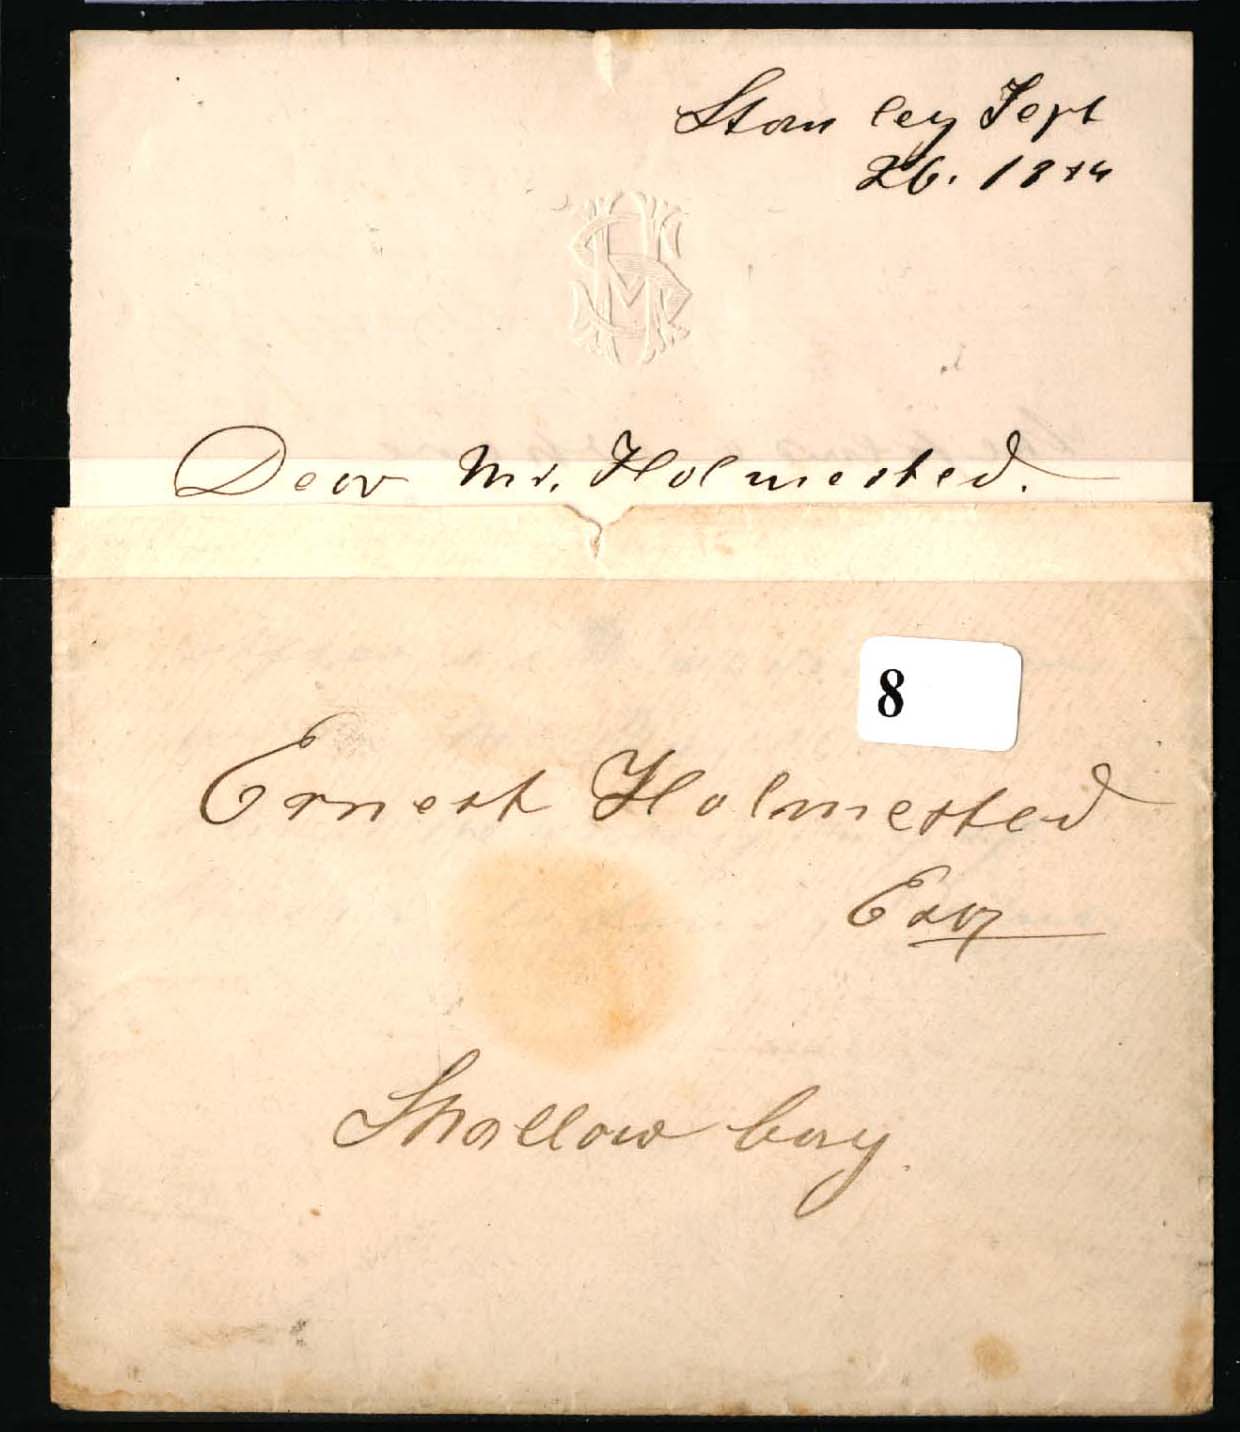 Stanley Sept
26. 1884
Dear Mr. Holmested.
8
Ernest Holmested
Esq
Shallow bay.